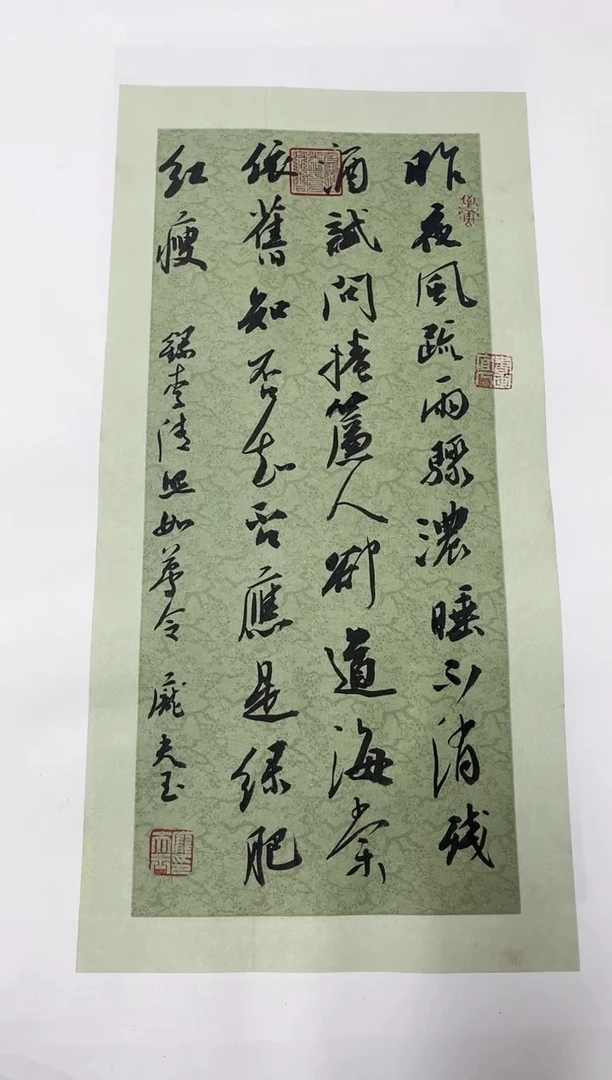 昨夜風疏雨驟濃睡不消残
酒試問捲簾人卻道海棠
依舊知否知否應是綠肥
紅瘦
錄李清照如夢令 龐玉